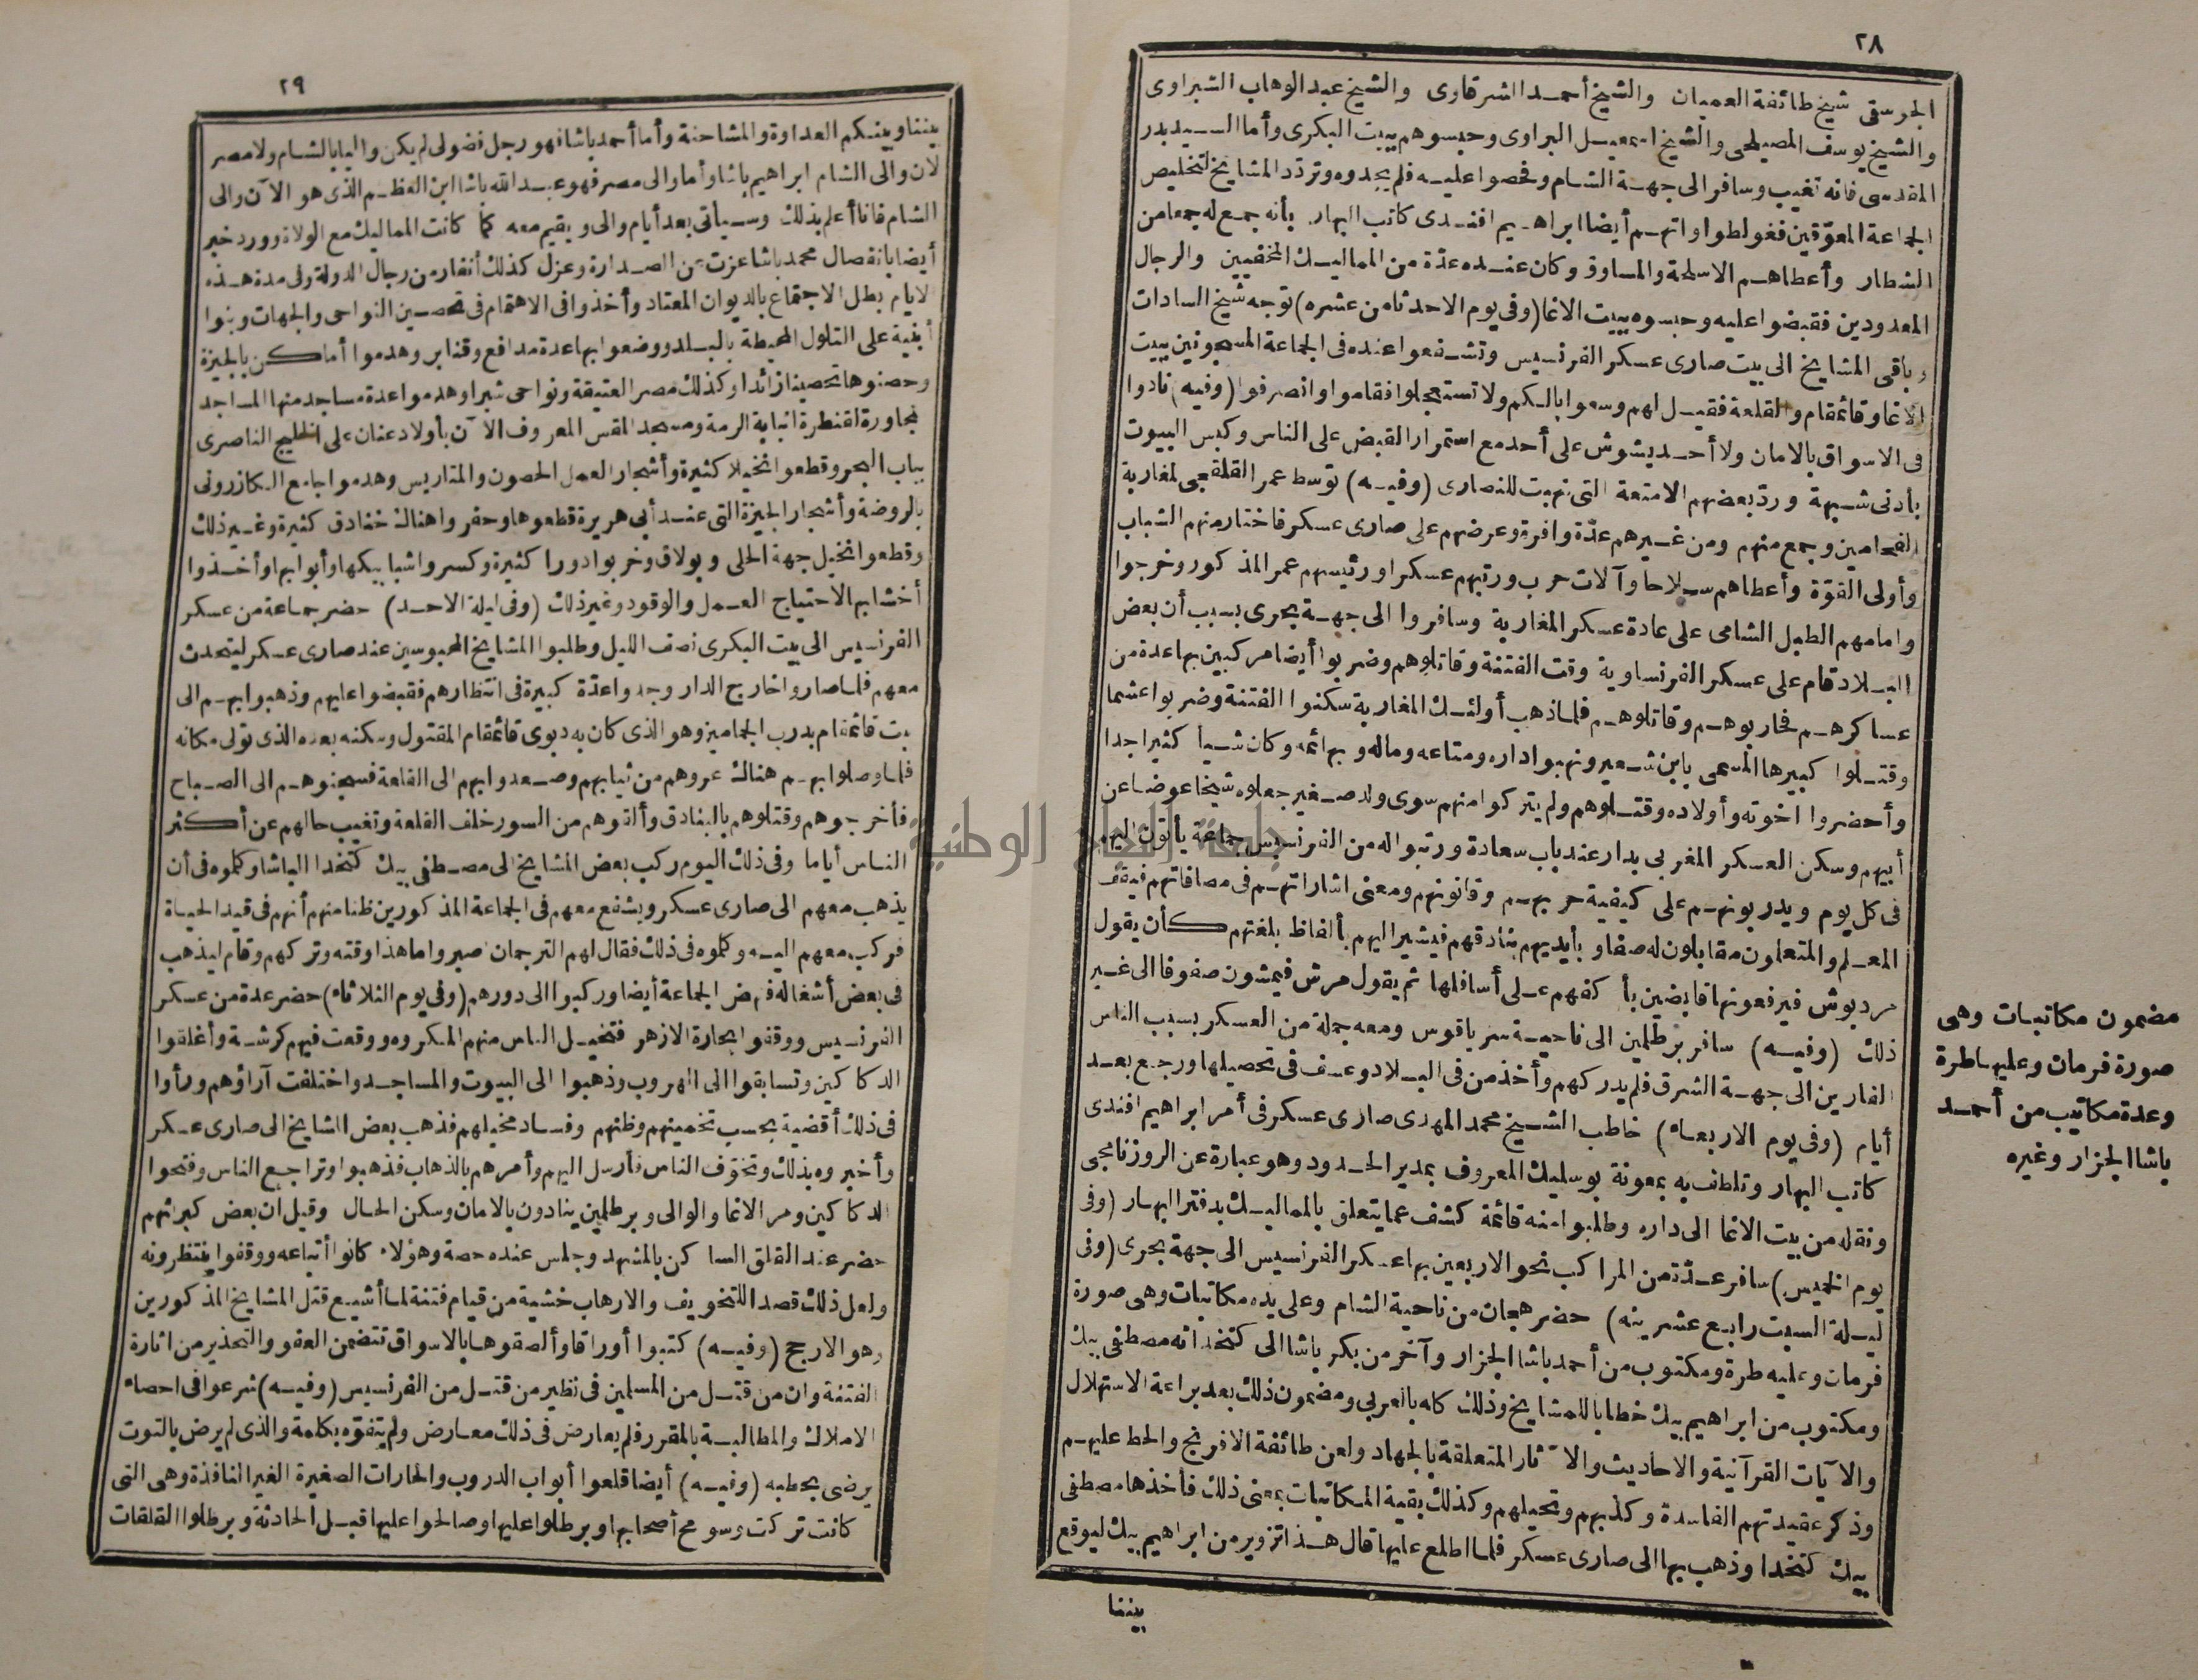 ٢٨
الجوسقى شيخ طائفة العميان والشيخ أحمد الشرقاوى والشيخ عبد الوهاب الشبراوى
والشيخ يوسف المصيلحى والشيخ اسمعيل البراوى وحبسوهم ببيت البكرى وأما السيد بدر
المقدسى فانه تغيب وسافر الى جهة الشام وفحصوا عليه فلم يجدوه وتردّد المشايخ لتخليص
الجماعة المعوّقين فغولطوا واتهم أيضا ابراهيم افندى كاتب البهار بأنه جمع له جمعا من
الشطار وأعطاهم الاسلحة والمساوق وكان عنده عدّة من المماليك المخفيين والرجال
المعدودين فقبضوا عليه وحبسوه ببيت الاغا (وفى يوم الاحد ثامن عشره) توجه شيخ السادات
وباقى المشايخ الى بيت صارى عسكر الفرنسيس وتشفعوا عنده فى الجماعة المسجونين ببيت
الاغا وقائمقام والقلعة فقيل لهم وسعوا بالكم ولا تستعجلوا فقاموا وانصرفوا (وفيه) نادوا
فى الاسواق بالامان ولا أحد يشوش على أحد مع استمرار القبض على الناس وكبس البيوت
بأدنى شبهة وردّ بعضهم الامتعة التى نهبت للنصارى (وفيه) توسط عمر القلقجى لمغاربة
الفحامين وجمع منهم ومن غيرهم عدّة وافرة وعرضهم على صارى عسكر فاختار منهم الشباب
وأولى القوّة وأعطاهم سلاحا وآلات حرب ورتبهم عسكرا ورئيسهم عمر المذكور وخرجوا
وامامهم الطبل الشامى على عادة عسكر المغاربة وسافروا الى جهة بحرى بسبب أن بعض
البلاد قام على عسكر الفرنساوية وقت الفتنة وقاتلوهم وضربوا أيضا مركبين بها عدة من
عساكرهم فحاربوهم وقاتلوهم فلما ذهب أولئك المغاربة سكنوا الفتنة وضربوا عشما
وقتلوا كبيرها المسمى بابن شعير ونهبوا داره ومتاعه وماله وبهائمه وكان شيأ كثيرا جدا
وأحضروا اخوته وأولاده وقتلوهم ولم يتركوا منهم سوى ولد صغير جعلوه شيخا عوضا عن
أبيهم وسكن العسكر المغربى بدار عند باب سعادة ورتبوا له من الفرنسيس جماعة يأتون اليهم
فى كل يوم ويدربونهم على كيفية حربهم وقانونهم ومعنى اشاراتهم فى مصافاتهم فيقف
المعلم والمتعلمون مقابلون له صفا وبأيديهم بنادقهم فيشير اليهم بألفاظ بلغتهم كأن يقول
مردبوش فيرفعونها قابضين بأكفهم على أسافلها ثم يقول مرش فيمشون صفوفا الى غير
ذلك (وفيه) سافر برطلمين الى ناحية سرياقوس ومعه جملة من العسكر بسبب الناس
الفارين الى جهة الشرق فلم يدركهم وأخذ من فى البلاد وعسف فى تحصيلها ورجع بعد
أيام (وفى يوم الاربعاء) خاطب الشيخ محمد المهدى صارى عسكر فى أمر ابراهيم افندى
كاتب البهار وتلطف به بمعونة بوسليك المعروف بمدير الحدود وهو عبارة عن الروزنامجى
ونقله من بيت الاغا الى داره وطلبوا منه قائمة كشف عما يتعلق بالمماليك بدفتر البهار (وفى
يوم الخميس) سافر عدّة من المراكب نحو الاربعين بها عسكر الفرنسيس الى جهة بحرى (وفى
ليلة السبت رابع عشرينه) حضر هجان من ناحية الشام وعلى يده مكاتبات وهى صورة
فرمان وعليه طرة ومكتوب من أحمد باشا الجزار وآخر من بكر باشا الى كتخدائه مصطفى بيك
ومكتوب من ابراهيم بيك خطابا للمشايخ وذلك كله بالعربى ومضمون ذلك بعد براعة الاستهلال
والآيات القرآنية والاحاديث والآثار المتعلقة بالجهاد ولعن طائفة الافرنج والحط عليهم
وذكر عقيدتهم الفاسدة وكذبهم وتحيلهم وكذلك بقية المكاتبات بمعنى ذلك فأخذها مصطفى
بيك كتخدا وذهب بها الى صارى عسكر فلما اطلع عليها قال هذا تزوير من ابراهيم بيك ليوقع
بيننا
مضمون مكاتبات وهى
صورة فرمان وعليها طرة
وعدة مكاتيب من أحمد
باشا الجزار وغيره
٢٩
بيننا وبينكم العداوة والمشاحنة وأما أحمد باشا فهو رجل فضولى لم يكن واليا بالشام ولا مصر
لان والى الشام ابراهيم باشا وأما والى مصر فهو عبد الله باشا ابن العظم الذى هو الآن والى
الشام فانا أعلم بذلك وسيأتى بعد أيام والى ويقيم معه كما كانت المماليك مع الولاة وورد خبر
أيضا بانفصال محمد باشا عزت عن الصدارة وعزل كذلك أنفار من رجال الدولة وفى مدة هذه
الايام بطل الاجتماع بالديوان المعتاد وأخذوا فى الاهتمام فى تحصين النواحى والجهات وبنوا
أبنية على التلول المحيطة بالبلد ووضعوا بها عدة مدافع وقنابر وهدموا أماكن بالجيزة
وحصنوها تحصينا زائدا وكذلك مصر العتيقة ونواحى شبرا وهدموا عدة مساجد منها المساجد
المجاورة لقنطرة انبابة الرمة ومسجد المقس المعروف الآن بأولاد عنان على الخليج الناصرى
بباب البحر وقطعوا نخيلا كثيرة وأشجار العمل الحصون والمتاريس وهدموا جامع الكازرونى
بالروضة وأشجار الجيزة التى عند أبى هريرة قطعوها وحفروا هناك خنادق كثيرة وغير ذلك
وقطعوا نخيل جهة الحلى وبولاق وخربوا دورا كثيرة وكسروا شبابيكها وأبوابها وأخذوا
أخشابها لاحتياج العمل والوقود وغير ذلك (وفى ليلة الاحد) حضر جماعة من عسكر
الفرنسيس الى بيت البكرى نصف الليل وطلبوا المشايخ المحبوسين عند صارى عسكر ليتحدث
معهم فلما صاروا خارج الدار وجدوا عدّة كبيرة فى انتظارهم فقبضوا عليهم وذهبوا بهم الى
بيت قائمقام بدرب الجماميز وهو الذى كان به دبوى قائمقام المقتول وسكنه بعده الذى تولى مكانه
فلما وصلوا بهم هناك عروهم من ثيابهم وصعدوا بهم الى القلعة فسجنوهم الى الصباح
فأخرجوهم وقتلوهم بالبنادق وألقوهم من السور خلف القلعة وتغيب حالهم عن أكثر
الناس أياما وفى ذلك اليوم ركب بعض المشايخ الى مصطفى بيك كتخدا الباشا وكلموه فى أن
يذهب معهم الى صارى عسكر ويشفع معهم فى الجماعة المذكورين ظنا منهم أنهم فى قيد الحياة
فركب معهم اليه وكلموه فى ذلك فقال لهم الترجمان اصبروا ما هذا وقته وتركهم وقام ليذهب
فى بعض أشغاله فنهض الجماعة أيضا وركبوا الى دورهم (وفى يوم الثلاثاء) حضر عدة من عسكر
الفرنسيس ووقفوا بحارة الازهر فتخيل الناس منهم المكروه ووقعت فيهم كرشة وأغلقوا
الدكاكين وتسابقوا الى الهروب وذهبوا الى البيوت والمساجد واختلفت آراؤهم ورأوا
فى ذلك أقضية بحسب تخمينهم وظنهم وفساد مخيلهم فذهب بعض المشايخ الى صارى عسكر
وأخبروه بذلك وتخوّف الناس فأرسل اليهم وأمرهم بالذهاب فذهبوا وتراجع الناس وفتحوا
الدكاكين ومر الاغا والوالى وبرطلمين ينادون بالامان وسكن الحال وقيل ان بعض كبرائهم
حضر عند القلق الساكن بالمشهد وجلس عنده حصة وهؤلاء كانوا أتباعه ووقفوا ينتظرونه
ولعل ذلك قصدا للتخويف والارهاب خشية من قيام فتنة لما أشيع قتل المشايخ المذكورين
وهو الارجح (وفيه) كتبوا أوراقا وألصقوها بالاسواق تتضمن العفو والتحذير من اثارة
الفتنة وان من قتل من المسلمين فى نظير من قتل من الفرنسيس (وفيه) شرعوا فى احصاء
الاملاك والمطالبة بالمقرر فلم يعارض فى ذلك معارض ولم يتفوّه بكلمة والذى لم يرض بالتوت
يرضى بحطبه (وفيه) أيضا قلعوا أبواب الدروب والحارات الصغيرة الغير النافذة وهى التى
كانت تركت وسومح أصحابها وبرطلوا عليها وصالحوا عليها قبل الحادثة وبرطلوا القلقات
جامعة النجاح الوطنية